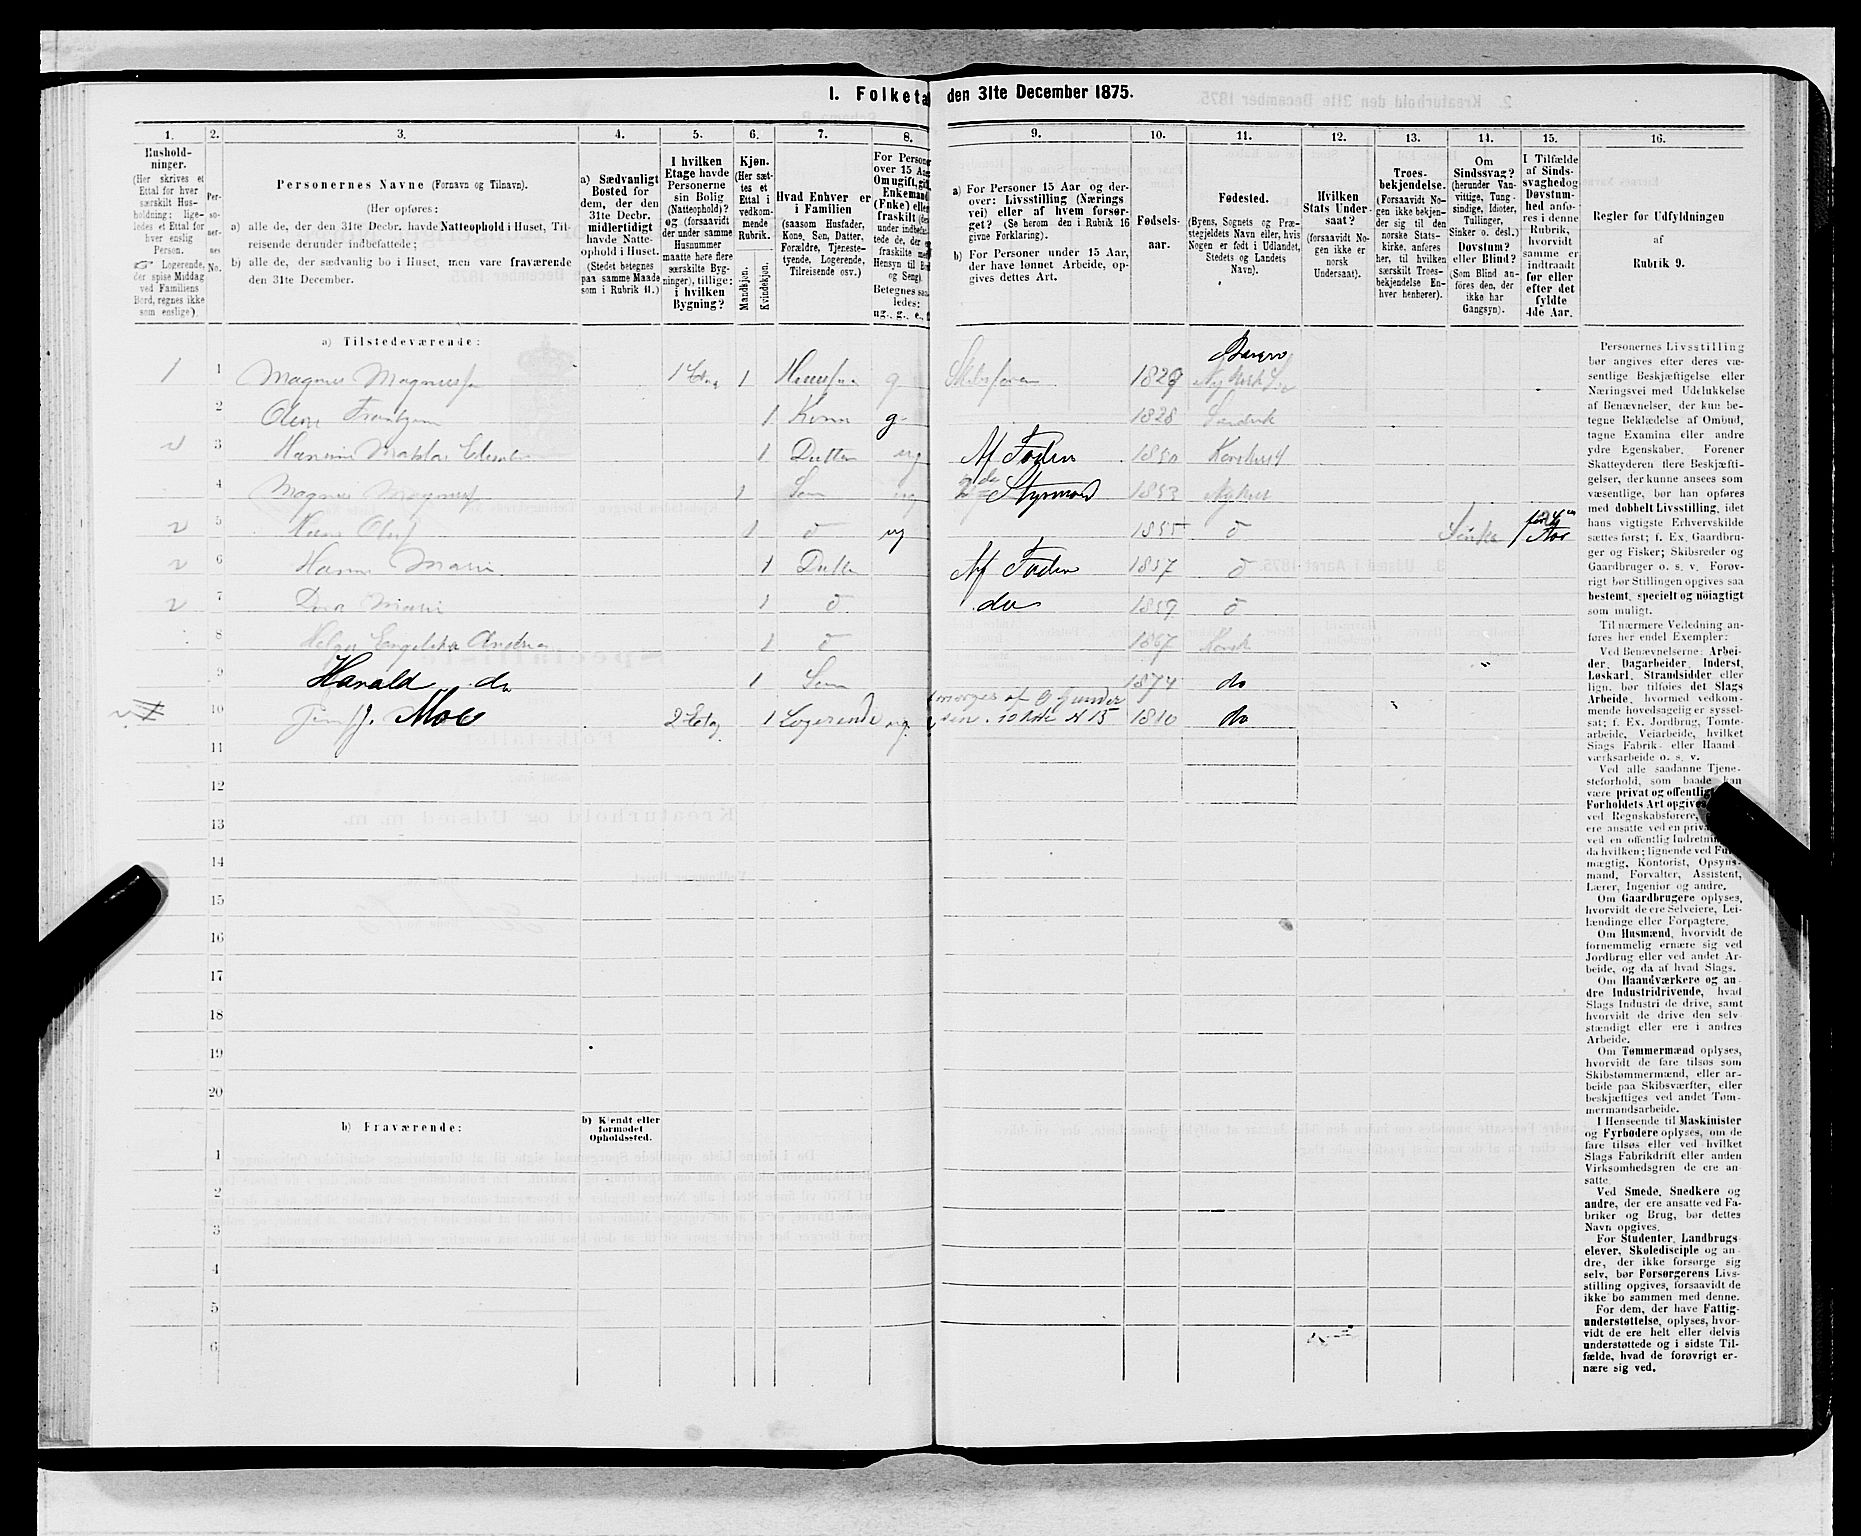 1. Folketæ den 31te December 1875.
1. 2. 3. 4. 5. 6. 7. 8. 9. 10. 11. 12. 13. 14. 15. 16.
Hushold-
ninger.
(Her skrives et
Ettal for hver
særskilt Hus-
holdning; lige-
ledes et Ettal for
hver enslig
Person.
Logerende,
der spise Middag
ved Familiens
Bord, regnes ikke
som enslige).
Per-
so-
ner-
nes
No.
Personernes Navne (Fornavn og Tilnavn).
(Her opføres:
a) alle de, der den 31te Decbr. havde Natteophold i Huset, Til-
reisende derunder indbefattede;
b) alle de, der sædvanlig bo i Huset, men vare fraværende
den 31te December.
a) Sædvanligt
Bosted for
dem, der den
31te Decbr.
midlertidigt
havde Natte-
ophold i Huset.
(Stedet betegnes
paa samme Maade
som i Rubrik 11.)
I hvilken
Etage havde
Personerne
sin Bolig
(Natteophold)?
og (forsaavidt
der under samme
Husnummer
maatte høre flere
særskilte Byg-
ninger), tillige:
i hvilken
Bygning?
Kjøn.
(Her sæt-
tes et
Ettal i
vedkom-
mende
Rubrik.
Mandkjøn.
Kvindekjøn.
Hvad Enhver er
i Familien
(saasom Husfader,
Kone, Søn, Datter,
Forældre, Tjeneste-
tyende, Logerende,
Tilreisende osv.)
For Person
over 15 Aar
Om ugift, gif
Enkemand
(Enke) elle
fraskilt (der
under indbefat
tede de, der e
fraskilte med
Hensyn til B
og Seng).
Betegnes saa
ledes:
ug., g., e., f
a) For Personer 15 Aar og der-
over: Livsstilling (Nærings
vei) eller af hvem forsør-
get? (Se herom den i Rubrik 16
givne Forklaring).
b) For Personer under 15 Aar,
der have lønnet Arbeide, op-
gives dettes Art.
Fødsels-
aar.
Fødested.
(Byens, Sognets og Præ-
stegjeldets Navn eller, hvis
Nogen er født i Udlandet,
Stedets og Landets
Navn).
Hvilken
Stats Under-
saat?
(forsaavidt No-
gen ikke er
norsk
Undersaat).
Troes-
bekjendelse.
(Forsaavidt No-
gen ikke bekjen-
der sig til den
norske Stats-
kirke, anføres
her, til hvilken
særskilt Troes-
bekjendelse En-
hver henhører).
Om
Sindssvag?
(herunder Van-
vittige, Tung-
sindige, Idioter,
Tullinger,
Sinker o. desl.)
Døvstum?
eller Blind?
(Som Blind an-
føres den, der
ikke har
Gangsyn).
I Tilfælde
af Sinds-
svaghed og
Døvstum-
hed anfø-
res i denne
Rubrik,
hvorvidt
samme er
indtraadt
før eller
efter det
fyldte
4de Aar.
Regler for Udfyldningen
af
Rubrik 9.
a) Tilstedeværende:
Bergen
1 1 Magnus Magnussen 1 Etag 1 Husfar g Skibsfører 1829
2 Oline 1 Kone g 1828
3 1 Datter ug Af Faderen 1850 Korskirk
4 Magnus Magnuss 1 Søn ug 2de Styrmand 1853 Nykirk
5 Hans Oluf 1 ug 1855 Sinke før 4
6 Hanna Marie 1 Datter Af Faderen 1857
7 Marie 1 do 1859
8 Helga Engelskia Andrea 1 1867 Korsk
9 Harald do 1 Søn 1874 do
10 J. Moe 2 Etag 1 Logerende ug 1810 do
11
12
13
14
15
16
17
18
19
20
b) Fraværende:
b) Kjendt eller
formodet
Opholdssted.
1
2
3
4
5
6
Personernes Livsstilling
bør angives efter deres væ-
sentlige Beskjæftigelse eller
Næringsvei med Udelukkelse
af Benævnelser, der kun be-
tegne Beklædelse af Ombud,
tagne Examina eller andre
ydre Egenskaber. Forener
Skatteyderen flere Beskjæfti-
gelser, der kunne ansees som
væsentlige, bør han opføres
med dobbelt Livsstilling, idet
hans vigtigste Erhvervskilde
sættes først; f. Ex. Gaardbru-
ger og Fisker; Skibsreder og
Gaardbruger o. s. v. Forøv-
rigt bør Stillingen opgives saa
bestemt, specielt og nøiagtigt
som muligt.
Til nærmere Veiledning an-
føres her endel Exempler:
Ved Benævnelserne: Arbei-
der, Dagarbeider, Inderst,
Løskarl, Strandsidder eller
lign. bør tilføies det Slags
Arbeide, hvormed vedkom-
mende hovedsagelig er syssel-
sat; f. Ex. Jordbrug, Tomte-
arbeide, Veiarbeide, hvilket
Slags Fabrik- eller Haand-
værksarbeide o. s. v.
Ved alle saadanne Tjene-
steforhold, som baade kan
være privat og offentlig
Forholdets Art opgives
ved Regnskabsførere,
ere ansatte ved en priva
ved en offentlig Indretnin
da hvilken; lignende ved Ful
mægtig, Kontorist, Opsyns-
mand, Forvalter, Assistent,
Lærer, Ingeniør og andre.
Om Gaardbrugere oplyses,
hvorvidt de ere Selveiere, Lei-
lændinge eller Forpagtere.
Om Husmænd, hvorvidt de
fornemmelig ernære sig ved
Jordbrug eller ved andet Ar-
beide, og da af hvad Slags.
Om Haandværkere og an-
dre Industridrivende, hvad
Slags Industri de drive, samt
hvorvidt de drive den selv-
stændigt eller ere i andres
Arbeide.
Om Tømmermænd oplyses,
hvorvidt de fare tilsøs som
Skibstømmermænd, eller ar-
beide paa Skibsværfter, eller
beskjæftiges ved andet Tøm-
mermandsarbeide.
I Henseende til Maskinister
og Fyrbødere oplyses, om de
fare tilsøs eller ved hvilket
Slags Fabrikdrift eller anden
Virksomhedsgren de ere an-
satte.
Ved Smede, Snedkere og
andre, der ere ansatte ved Fa-
briker og Brug, bør dettes
Navn opgives.
For Studenter, Landbrugs-
elever, Skoledisciple og an-
dre, der ikke forsørge sig
selv, bør Forsørgerens Livs-
stilling opgives, forsaavidt de
ikke bo sammen med denne.
For dem, der have Fattig-
understøttelse, oplyses, hvor-
vidt de ere helt eller delvis
understøttede og i sidste Til-
fælde, hvad de forøvrigt er-
nære sig ved.